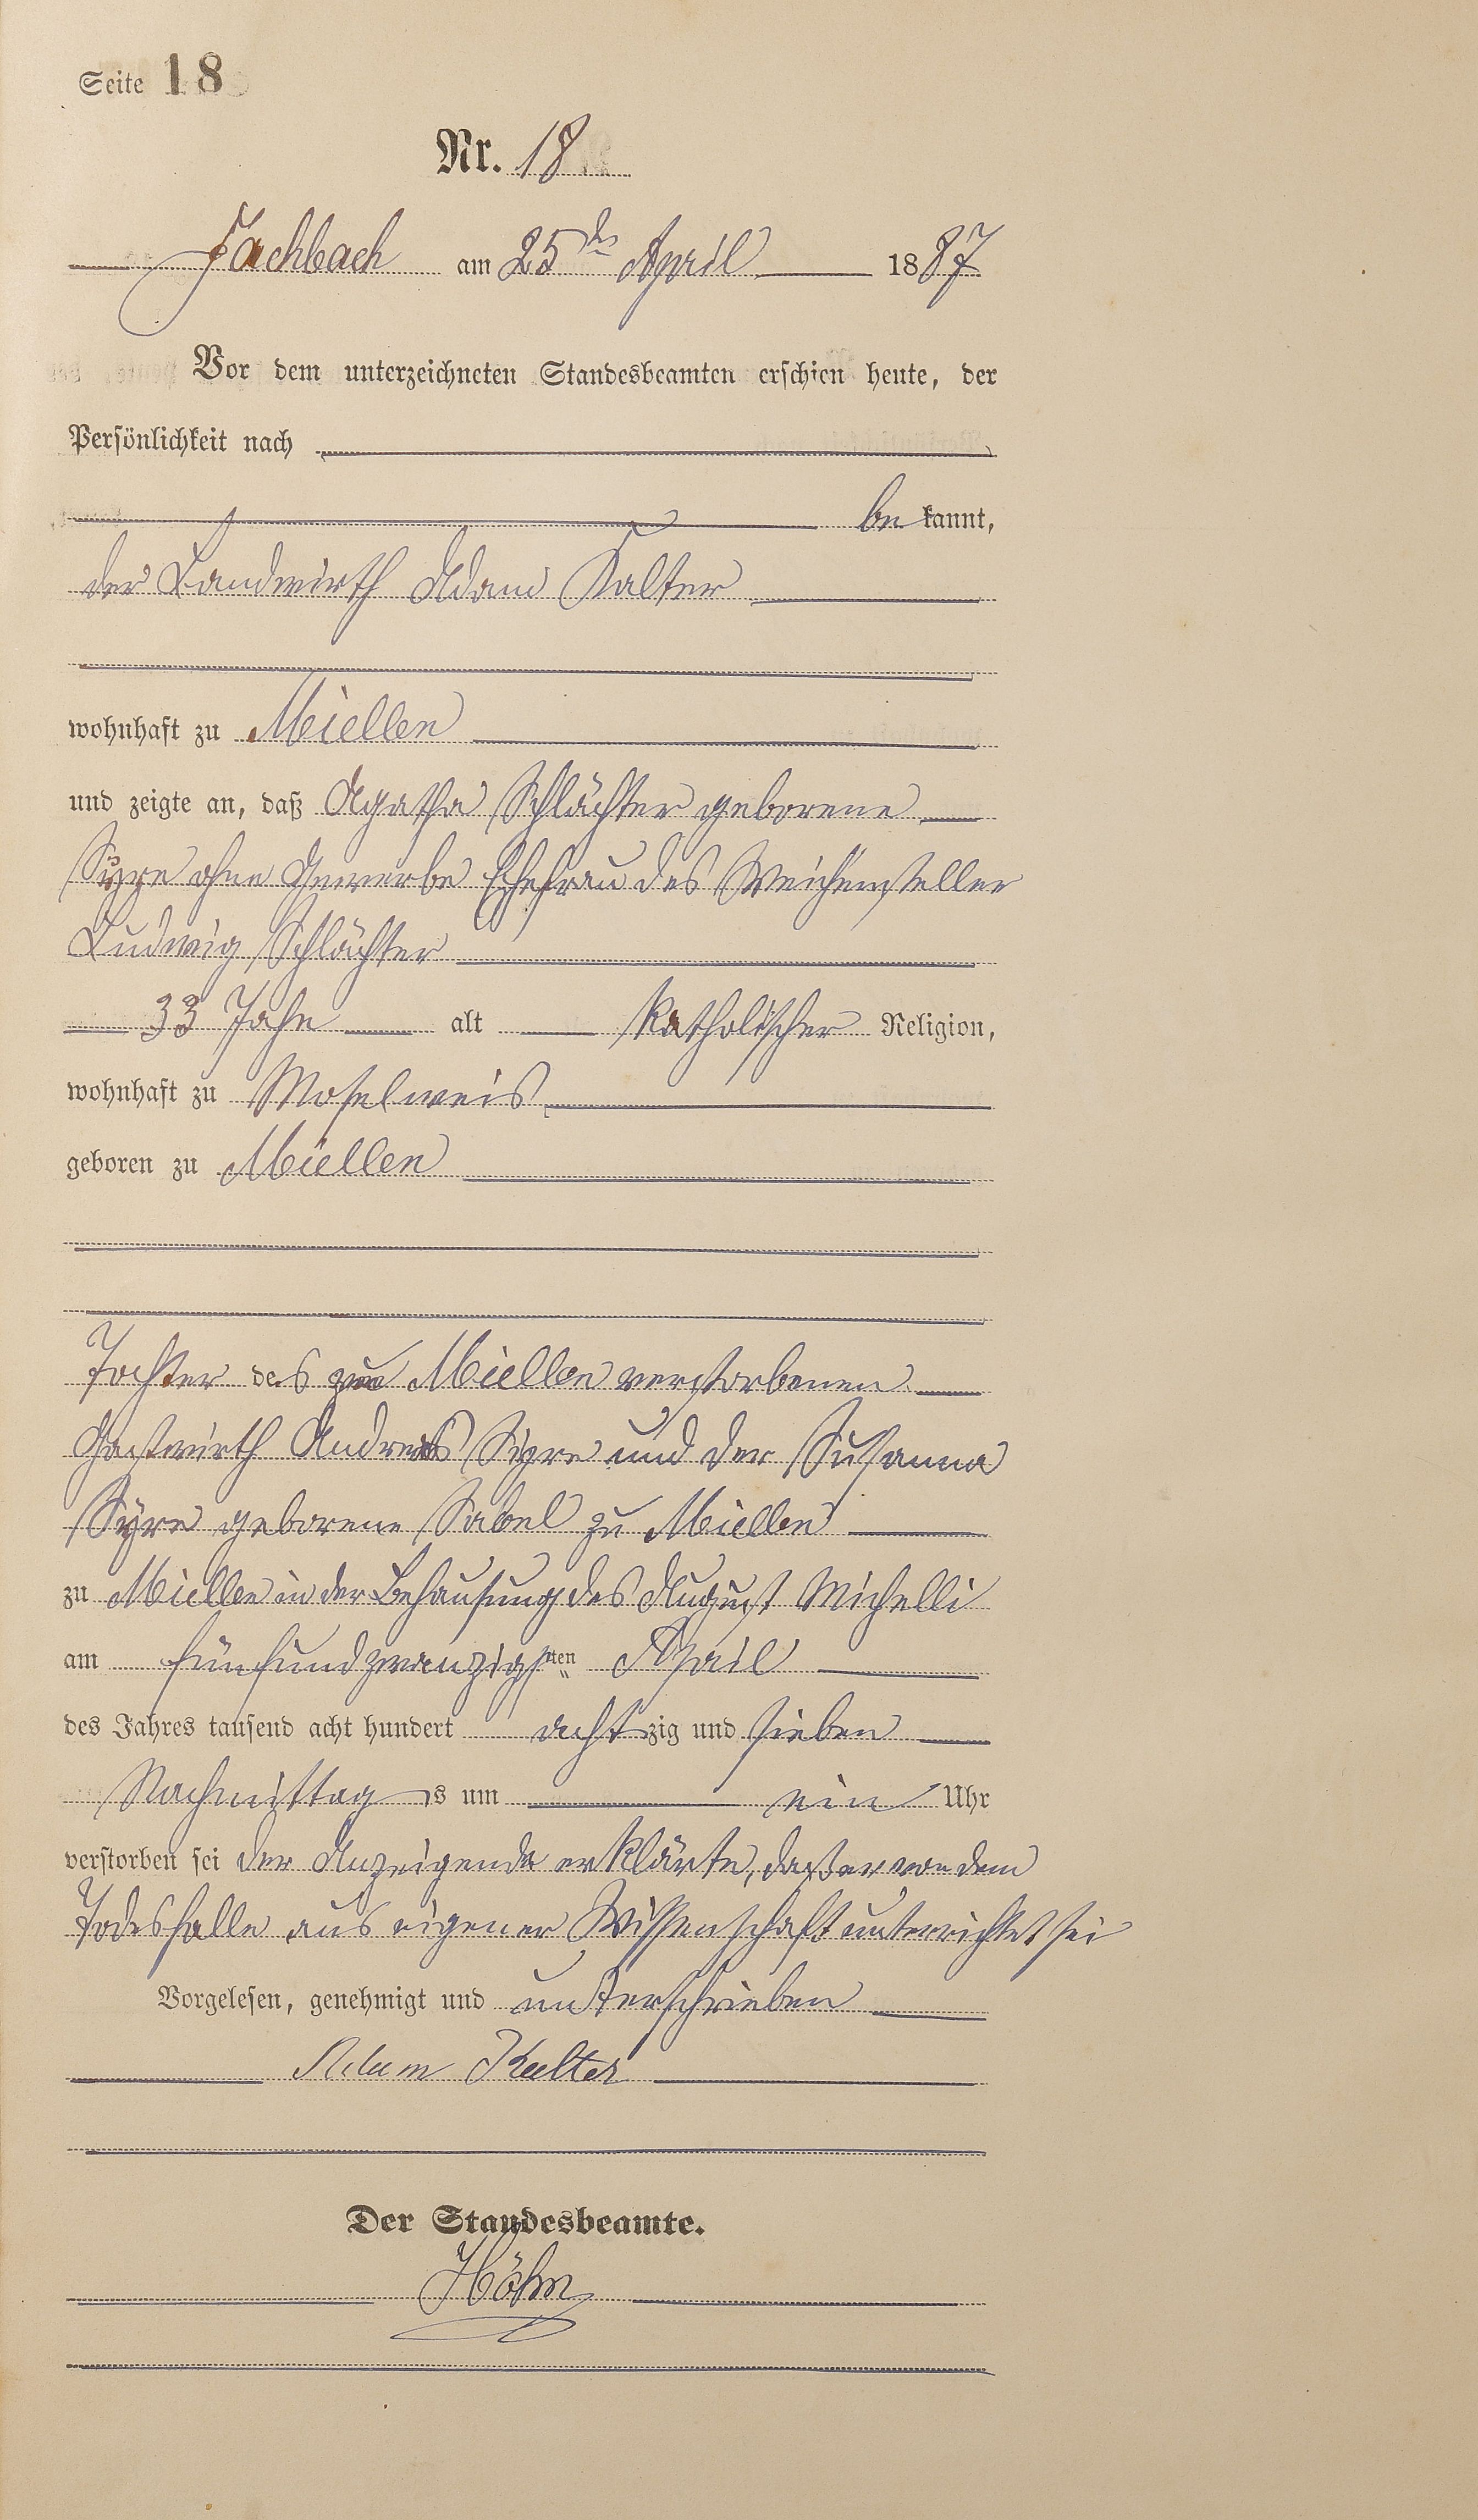 Seite 18
Nr. 18
Fachbach am 25ten April 1887
Vor dem unterzeichneten Standesbeamten erschien heute, der
Persönlichkeit nach
be kannt,
der Landwirth Adam Kalter
wohnhaft zu Miellen
und zeigte an, daß Agatha Schlächter geborene
Syre ohne Gewerbe Ehefrau des Weichensteller
Ludwig Schlächter
33 Jahre alt katholischer Religion,
wohnhaft zu Moselweis
geboren zu Miellen
Tochter des zu Miellen verstorbenen
Gastwirth Andreas Syre und der Susanna
Syre geborene Sabel zu Miellen
zu Miellen in der Behausung des August Michelli
am fünfundzwanzigsten April
des Jahres tausend acht hundert achtzig und sieben
Nachmittags um ein Uhr
verstorben sei der Anzeigende erklärte, daß er von dem
Todesfalle aus eigener Wissenschaft unterrichtet sei
Vorgelesen, genehmigt und unterschrieben
Adam Kalter
Der Standesbeamte.
Höhn